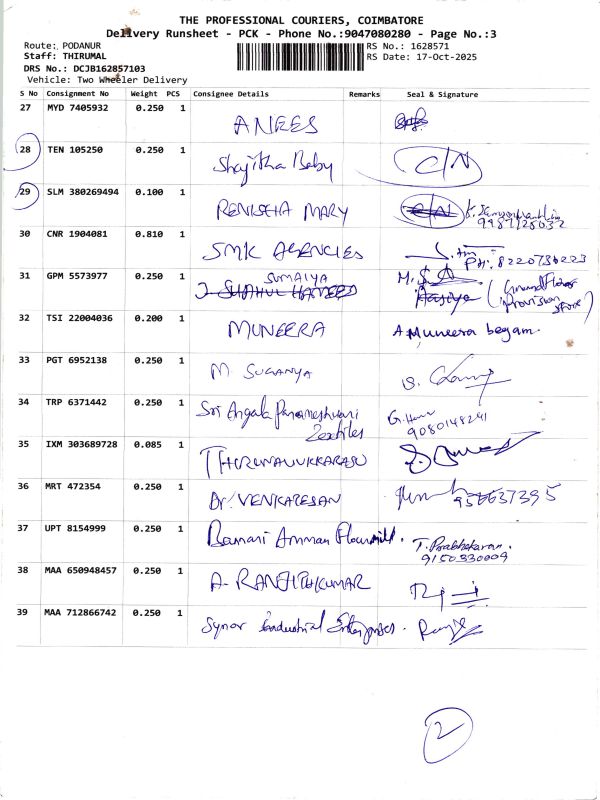 THE PROFESSIONAL COURIERS, COIMBATORE
Delivery Runsheet - PCK - Phone No.:9047080280 - Page No.:3
Route: PODANUR RS No.: 1628571
Staff: THIRUMAL RS Date: 17-Oct-2025
DRS No.: DCJB162857103
Vehicle: Two Wheeler Delivery
S No Consignment No Weight PCS Consignee Details Remarks Seal & Signature
27 MYD 7405932 0.250 1 ANEES
28 TEN 105250 0.250 1 Shajitha Baby C/N
29 SLM 380269494 0.100 1 RENISHA MARY C/N
30 CNR 1904081 0.810 1 SMK AGENCIES
PH: 8220736223
31 GPM 5573977 0.250 1 SUMAIYA M.S
J. SHAHUL HAMEED (Ground Floor
provision store)
32 TSI 22004036 0.200 1 MUNEERA A Muneera begam.
33 PGT 6952138 0.250 1 M SUGANYA
34 TRP 6371442 0.250 1 Sri Angala Parameshwari
Textiles 9080148241
35 IXM 303689728 0.085 1 THIRUNAVUKKARASU
36 MRT 472354 0.250 1 Dr. VENKATESAN
37 UPT 8154999 0.250 1 Bannari Amman Flourmill. T. Prabhakaran.
9150330009
38 MAA 650948457 0.250 1 A. RANJITHKUMAR
39 MAA 712866742 0.250 1 Synor Industrial Enterprises.
2